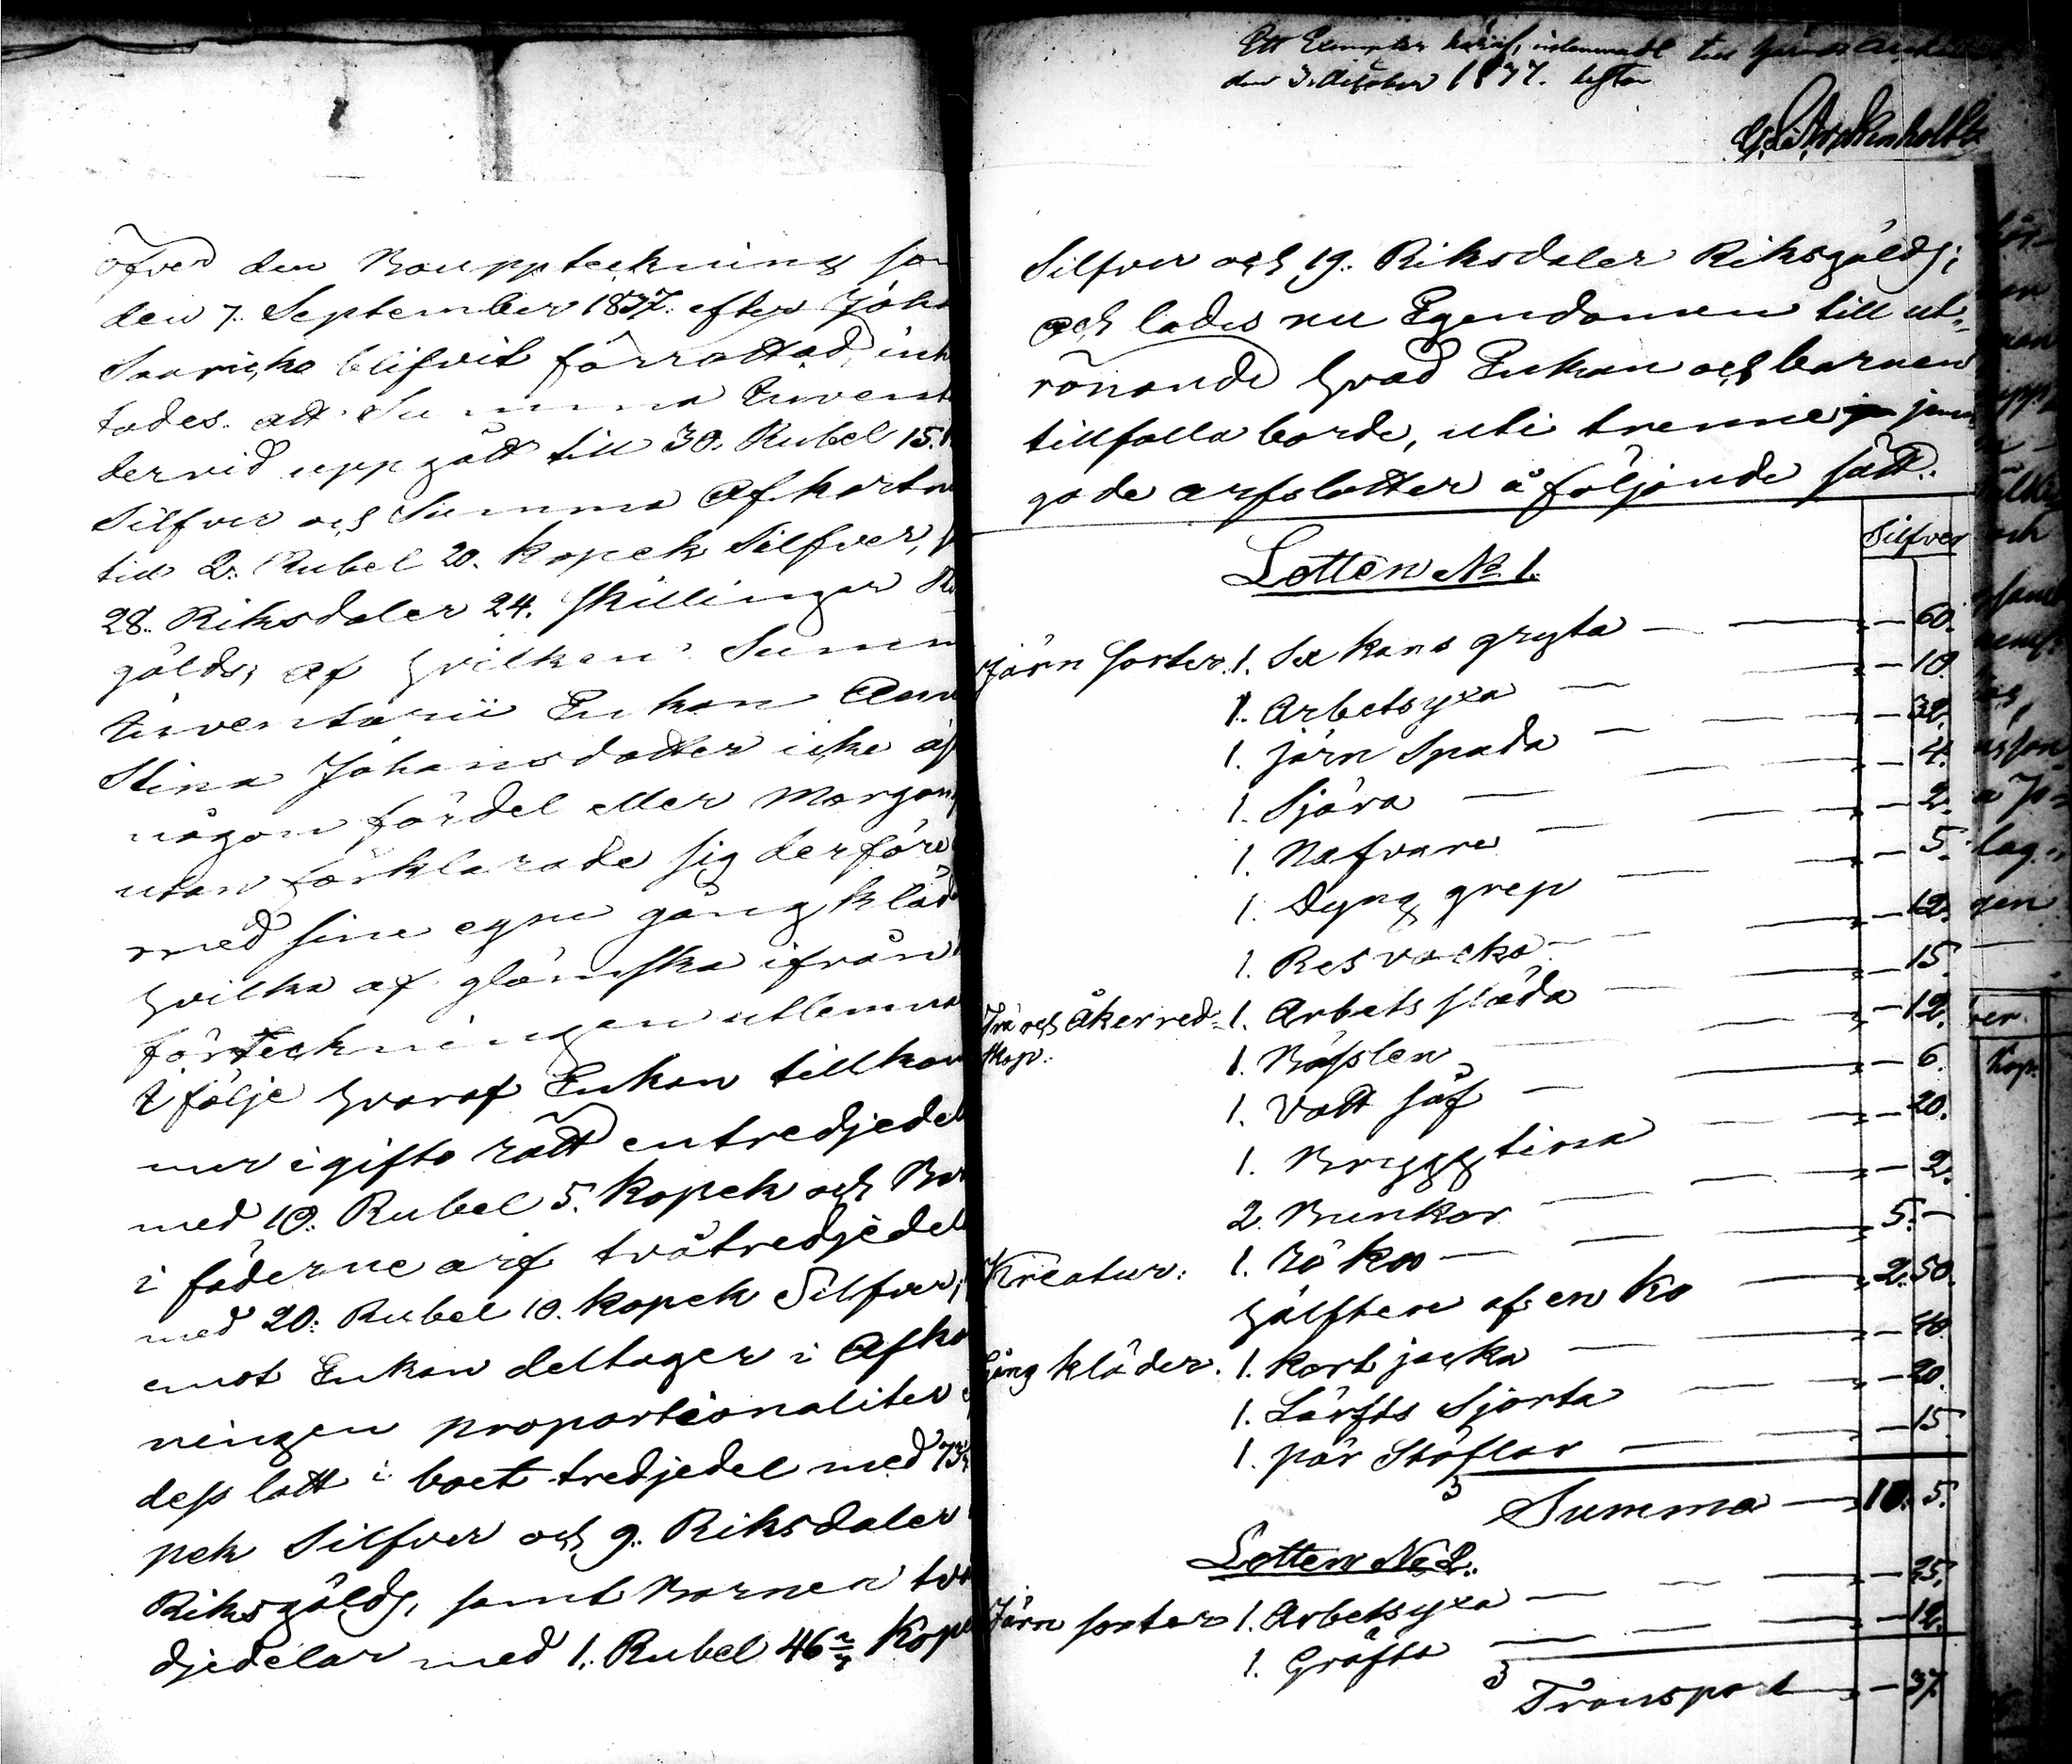 öfver den Bouppteckning som
den 7. September 1837. efter Joha
Saaricko blifvit förrättad, inh
tades. att Summa Invent
dervid uppgått till 30. Rubel 15. k
Silfver och Summa Afkortn
till 2. Rubel 20. kopek Silfver,
28. Riksdaler 24. skillingar Ri
gälds, af hvilken Summ
Inventarii Enkan Ann
Stina Johansdotter icke äs
någon fördel eller Morgon
utan förklarade sig derföre
med sine egne gång kläd
hvilka af glömska ifrån
förteckningen utlemna
I följe hvaraf Enkan tillkom
mer i gifto rätt entredjedel
med 10. Rubel 5. kopek och Bar
i fäderne arf tvåtredjedel
med 20. Rubel 10. kopek Silfver,
emot Enkan deltager i Afko
ningen proportionaliter
dess lott i boet tredjedel med 73⅓
pek Silfver och 9. Riksdaler
Riksgälds, samt Barnen två
djedelar med 1. Rubel 46 2/3 Kope
Ett Exemplar häraf, inlemnadt till
den 3. October 1837.
Silfver och 19. Riksdaler Riksgälds;
och lades nu Egendomen till ut-
rönande hvad Enkan och barnen
tillfalla borde, uti trenne jem
gode arfslotter å följande sätt.
Silfver
Lotten No 1.
Järn sorter. 1. Sex kans gryta — 60.
1. Arbetsyxa — 10.
1. järn Spada — 32.
1. Skjära — 4.
1. Nafvare — 2.
1. Dyng grep — 5.
1. Resvacka — 12.
Trä och Åkerred- 1. Arbets släda — 15.
skap. 1. Båsslen — 12.
1. Vatt så — 6.
1. Bryggtina — 20.
2. Bunkar — 2.
Kreatur. 1. Rå ko — 5. —
hälften af en Ko — 2. 50.
Gång kläder. 1. Kort jacka — 40
1. Lärfts Skjorta — 20.
1. par Stöflar — 15.
Summa — 10. 5.
Lotten No 2.
Järn sorter 1. Arbetsyxa — 25.
1. Gräfta — 12.
Transport — 37.